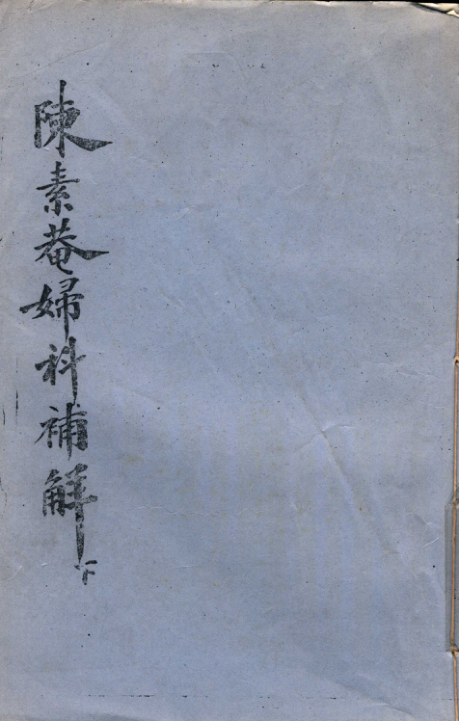 陳素菴婦科補解 下